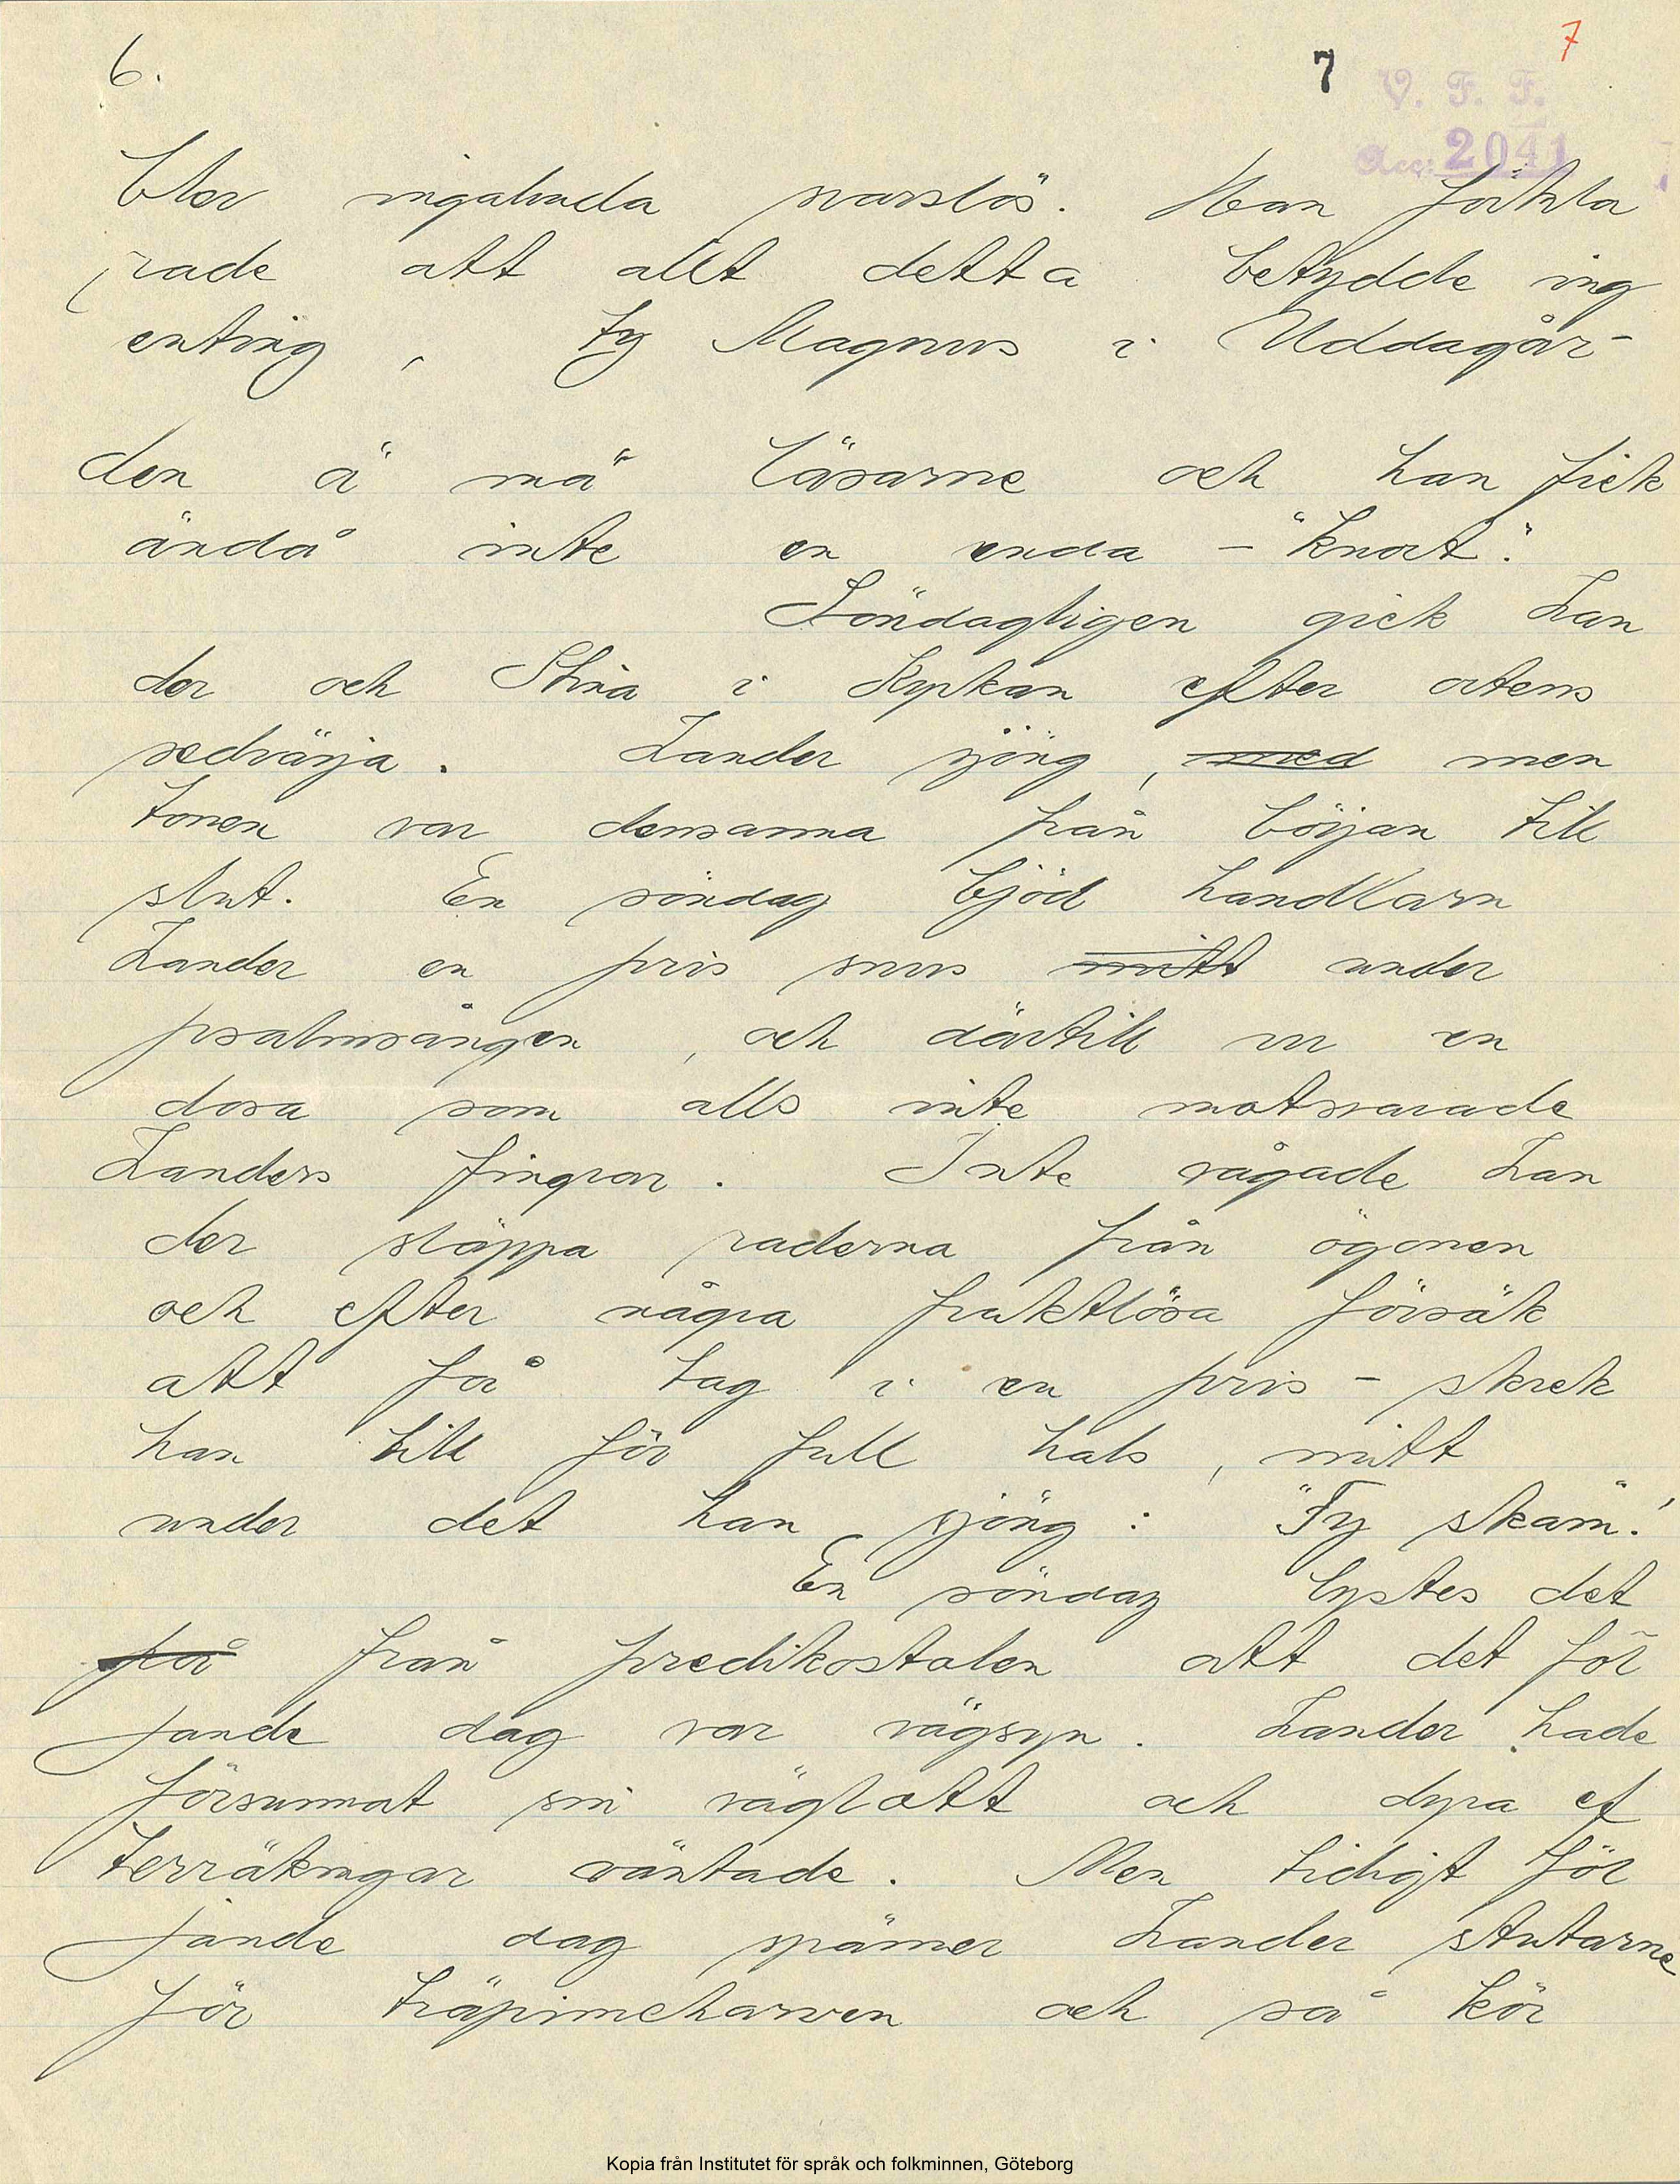 6.
7
7
V. F. F.
Acc: 2041
blev ingalunda svarslös. Han förkla
rade att allt detta betydde ing
enting, ty Magnus i Uddagår-
den ä mä läsarne och han fick
ändå inte en enda - "knort".
Söndagligen gick Lan
der och Stina i Kyrkan efter ortens
sedvänja. Lander sjöng, med men
tonen var densamma från början till
slut. En söndag bjöd handlarn
Lander en pris snus mitt under
psalmsången, och därtill ur en
dosa som alls inte motsvarade
Landers fingrar. Inte vågade Lan
der släppa raderna från ögonen
och efter några fruktlösa försök
att få tag i en pris - skrek
han till för full hals, mitt
under det han sjöng: "Fy skam"!
En söndag lystes det
på från predikostolen att det föl
jande dag var vägsyn. Lander hade
försummat sin väglott och dyra ef
terräkningar väntade. Men tidigt föl
jande dag spänner Lander stutarne
för träpinneharven och så kör
Kopia från Institutet för språk och folkminnen, Göteborg